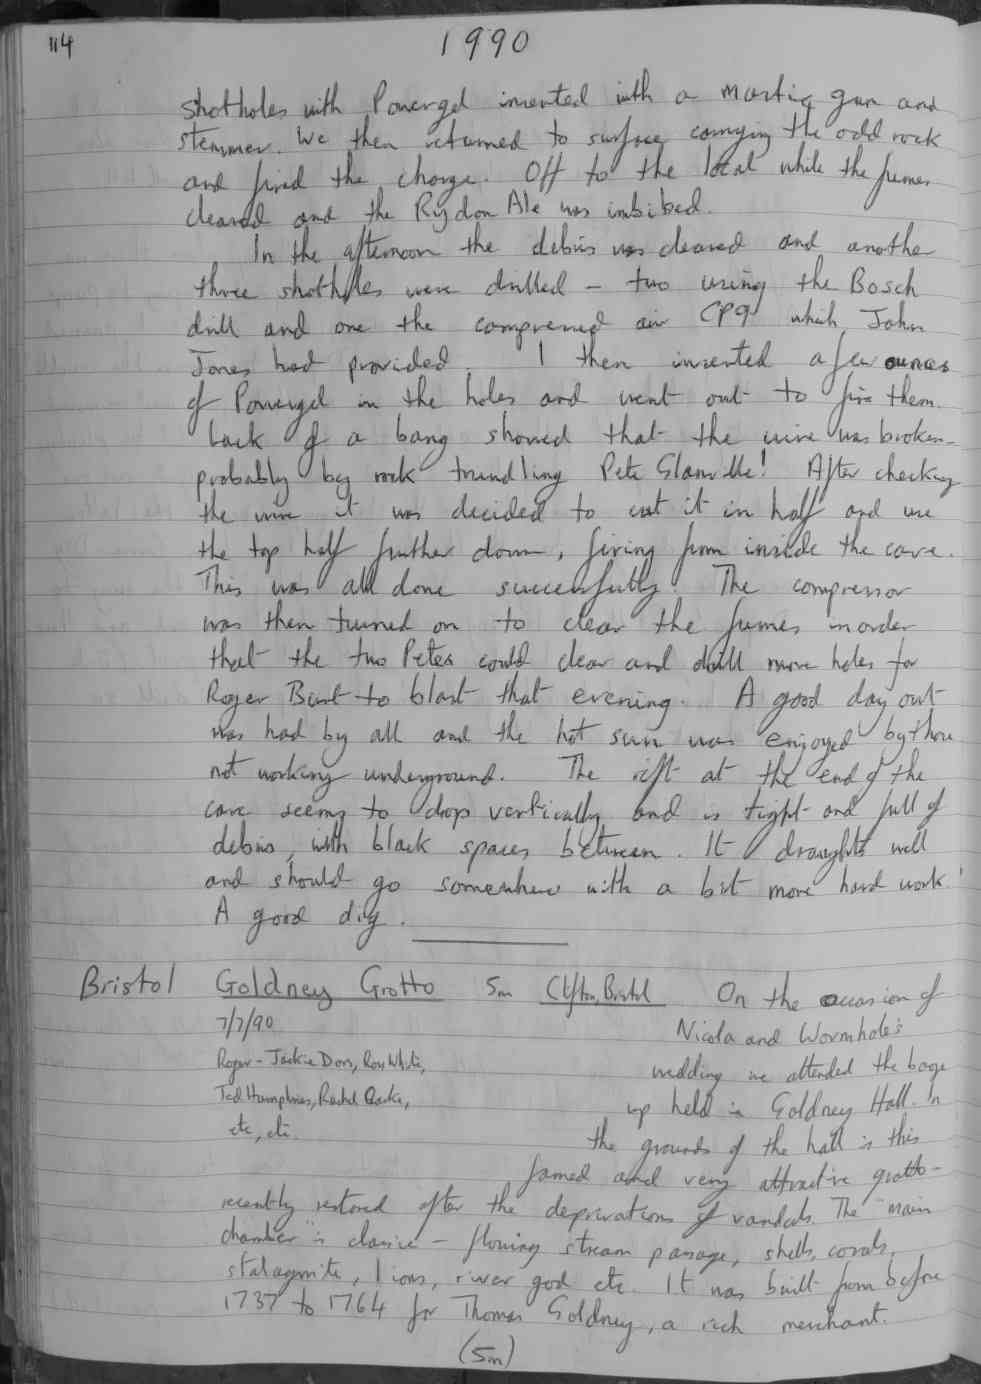 114
1990
shotholes with Powergel inserted with a mastic gun and
stemmer. We then returned to surface carrying the odd rock
and fired the charge. Off to the local while the fumes
cleared and the Rydon Ale was imbibed.
In the afternoon the debris was cleared and another
three shotholes were drilled - two using the Bosch
drill and one the compressed air CP9 which John
Jones had provided. I then inserted a few ounces
of Powergel in the holes and went out to fire them.
Lack of a bang showed that the wire was broken -
probably by rock trundling Pete Glanville! After checking
the wire it was decided to cut it in half and use
the top half further down, firing from inside the cave.
This was all done successfully. The compressor
was then turned on to clear the fumes in order
that the two Petes could clear and drill more holes for
Roger Bint to blast that evening. A good day out
was had by all and the hot sun was enjoyed by those
not working underground. The rift at the end of the
cave seems to drop vertically and is tight and full of
debris, with black spaces between. It draughts well
and should go somewhere with a bit more hard work!
A good dig.
Bristol Goldney Grotto 5m Clifton, Bristol On the occasion of
7/7/90 Nicola and Wormhole's
Roger - Jackie Dors, Ron White, wedding we attended the booze
Ted Humphries, Rachel Clarke, up held in Goldney Hall. In
etc, etc. the grounds of the hall is this
famed and very attractive grotto -
recently restored after the deprivations of vandals. The "main
chamber" is classic - flowing stream passage, shells, corals,
stalagmite, lions, river god etc. It was built from before
1737 to 1764 for Thomas Goldney, a rich merchant.
(5m)